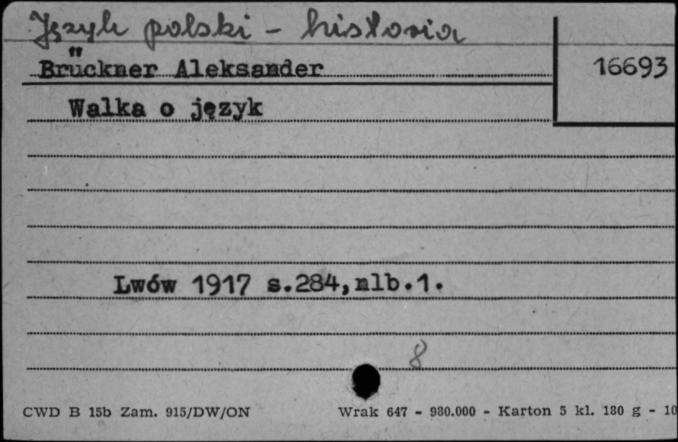 Język polski - historia
Brückner Aleksander
16693
Walka o język
Lwów 1917 s.284,nlb.1.
8
CWD B 15b Zam. 915/DW/ON
Wrak 647 - 980.000 - Karton 5 kl. 180 g - 10